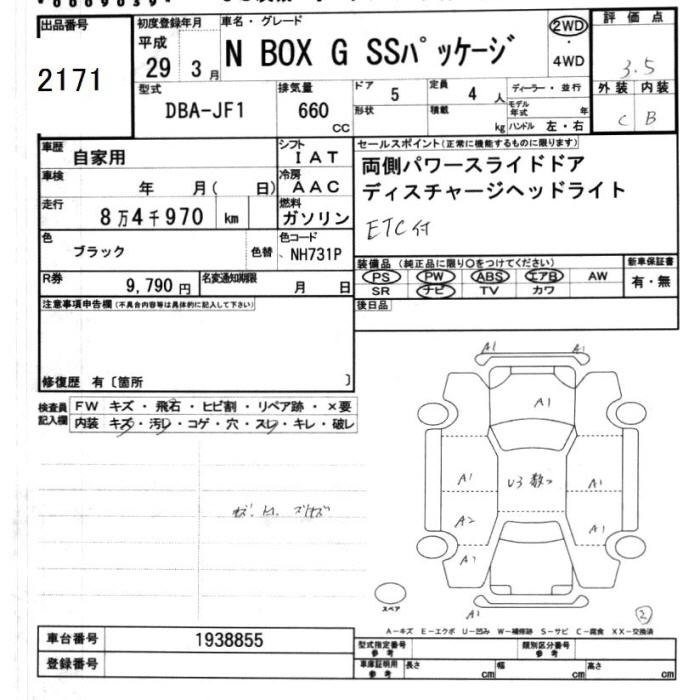 出品番号
2171
初度登録年月
平成
29 3月
車名・グレード
N BOX G SSパッケージ
2WD
・
4WD
評価点
3.5
外装 内装
C B
型式
DBA-JF1
排気量
660
cc
ドア
5
形状
定員
4 人
積載
kg
ディーラー・並行
モデル年式 年
ハンドル 左・右
車歴
自家用
シフト
IAT
車検
年 月( 日)
冷房
AAC
走行
8万4千970 km
燃料
ガソリン
色
ブラック
色替
色コード
NH731P
R券
9,790円
名変通知期限
月 日
セールスポイント(正常に機能するものに限ります)
両側パワースライドドア
ディスチャージヘッドライト
ETC付
装備品(純正品に限り○をつけてください)
PS PW ABS エアB AW
SR ナビ TV カワ
新車保証書
有・無
後日品
注意事項申告欄(不具合内容等は具体的に記入して下さい)
修復歴 有〔箇所 〕
検査員
記入欄
FW キズ・飛石・ヒビ割・リペア跡・×要
内装 キズ・汚レ・コゲ・穴・スレ・キレ・破レ
A1 A1
A1
A1 U3 数つ A1
A2 A1
A1
スペア
2
A-キズ E-エクボ U-凹み W-補修跡 S-サビ C-腐食 XX-交換済
車台番号
1938855
登録番号
型式指定番号
参考
類別区分番号
参考
車庫証明用
参考
長さ cm 幅 cm 高さ cm